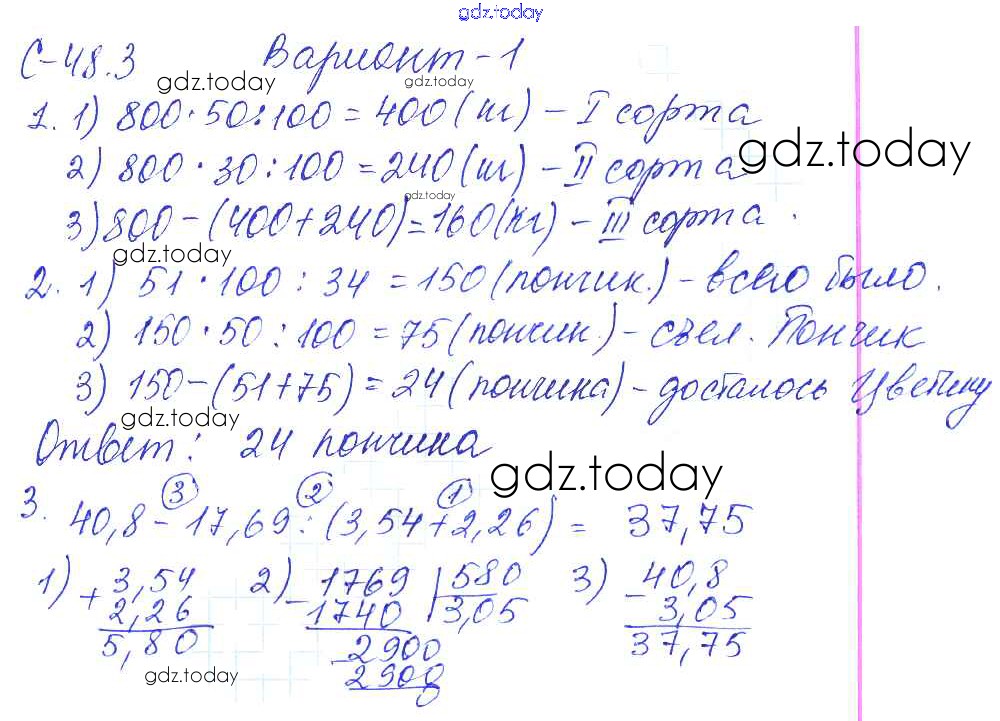 gdz.today
С-48.3 Вариант-1
gdz.today gdz.today
1. 1) 800·50:100=400(кг) - I сорта
gdz.today
2) 800·30:100=240(кг) - II сорта
gdz.today
3) 800-(400+240)=160(кг) - III сорта.
gdz.today
2. 1) 51·100:34=150(пончик.) - всего было.
2) 150·50:100=75(пончик.) - съел. Пончик
3) 150-(51+75)=24(пончика) - досталось Цветику
gdz.today
Ответ: 24 пончика
gdz.today
3 2 1
3. 40,8-17,69:(3,54+2,26)= 37,75
1) + 3,54 2) - 1769 | 580 3) - 40,8
2,26 1740 3,05 3,05
5,80 - 2900 37,75
gdz.today 2900 gdz.today
0